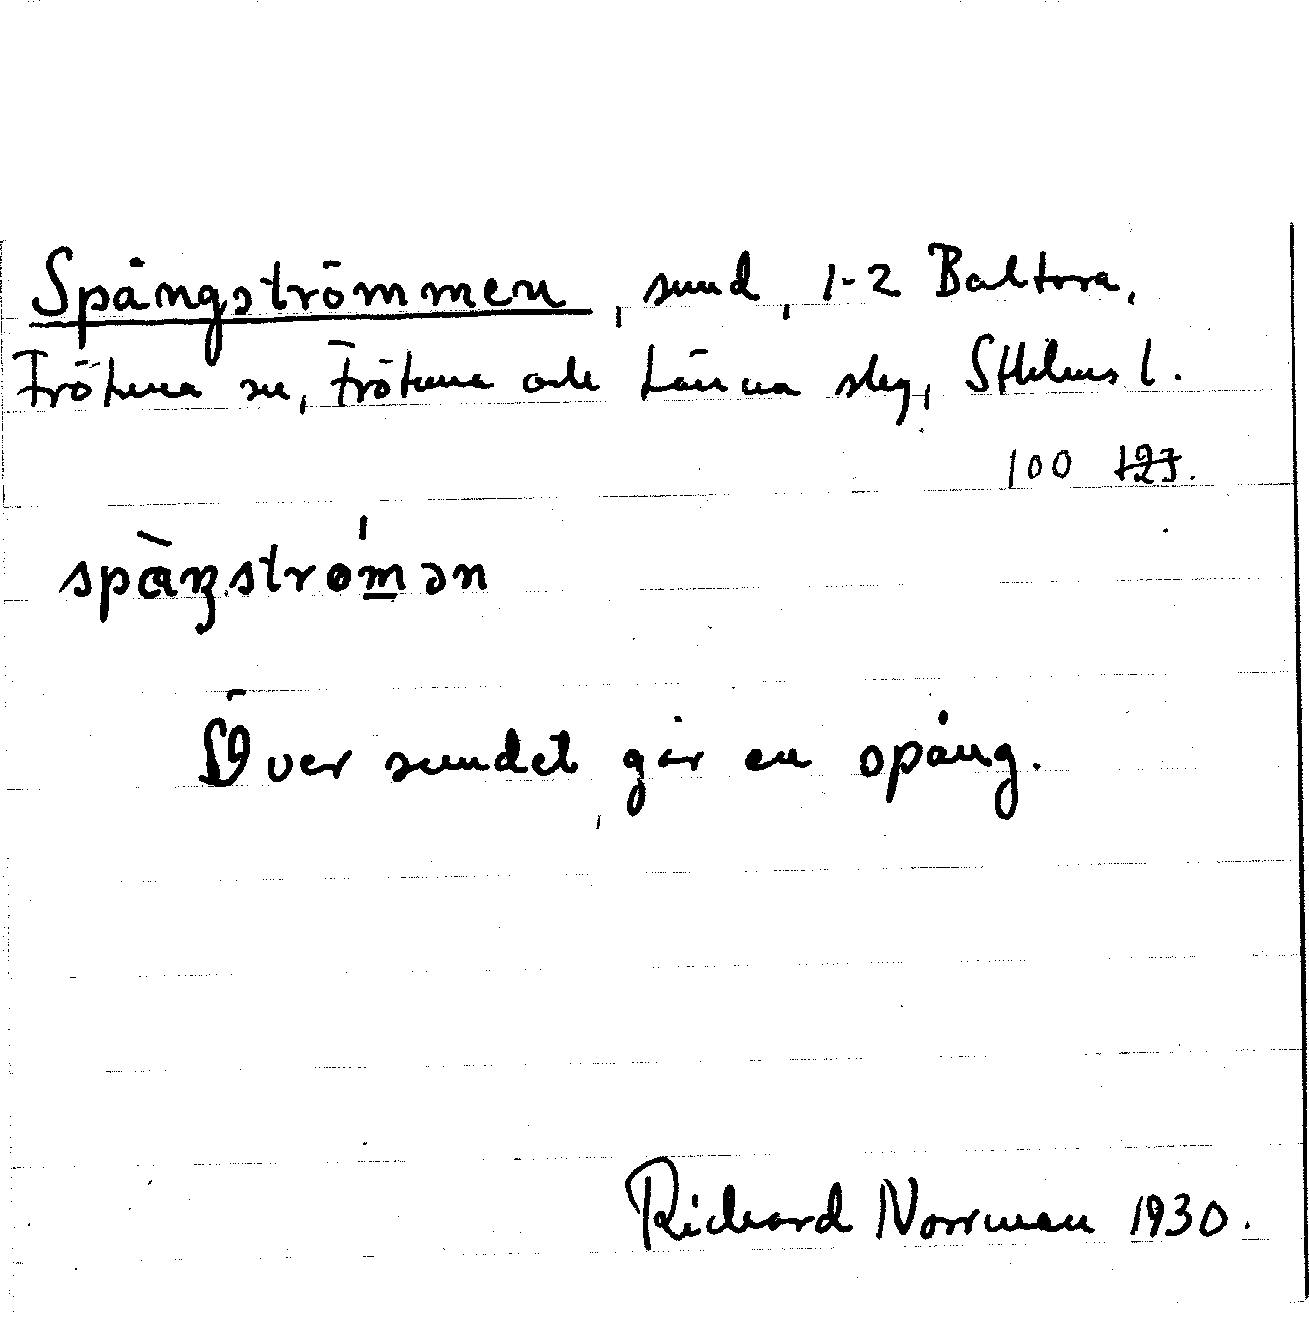 Spångströmmen, sund, 1-2 Baltora,
Frötuna sn, Frötuna och Länna skg, Sthlms l.
100 123.
spàŋstrømən
Över sundet går en spång.
Richard Norrman 1930.